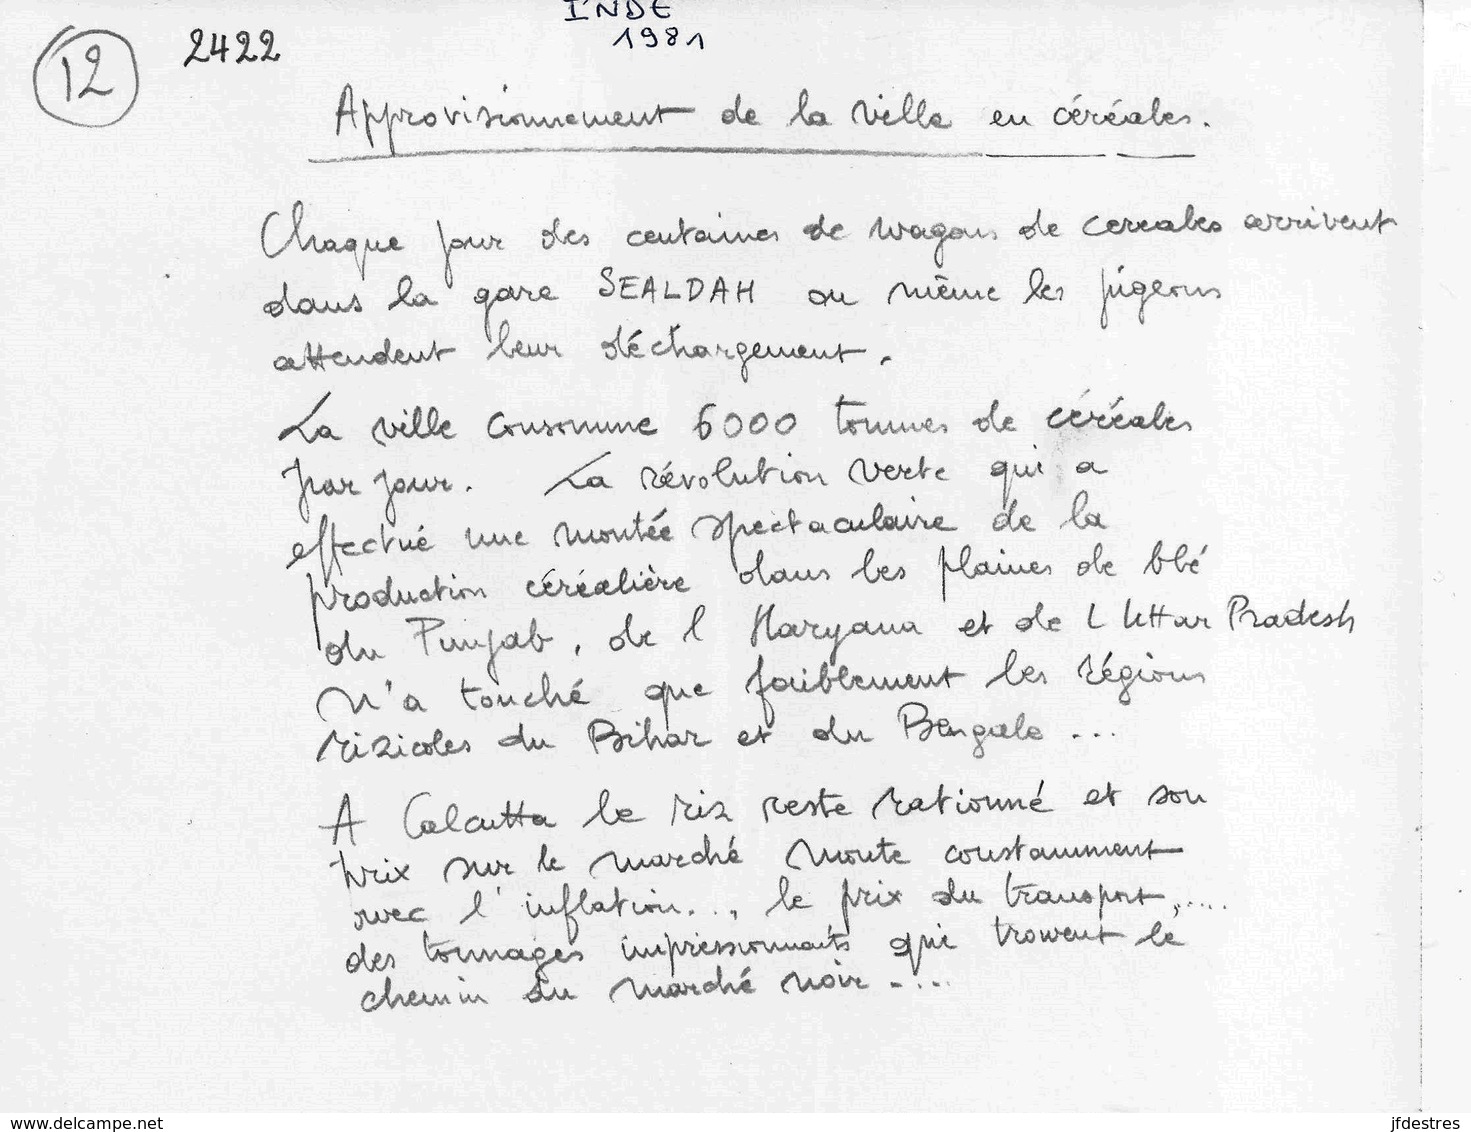 INDE
1981
12
2422
Approvisionnement de la ville en céréales.
Chaque jour des centaines de wagons de cereales arrivent
dans la gare SEALDAH ou même les pigeons
attendent leur déchargement.
La ville consomme 6000 tonnes de céréales
par jour. La révolution verte qui a
effectué une montée spectaculaire de la
production céréalière dans les plaines de blé
du Punjab, de l Haryana et de L Uttar Pradesh
n'a touché que faiblement les régions
rizicoles du Bihar et du Bengale ...
A Calcutta le riz reste rationné et son
prix sur le marché monte constamment
avec l'inflation..., le prix du transport,.....
des tonnages impressionnants qui trouvent le
chemin du marché noir ....
www.delcampe.net
jfdestres